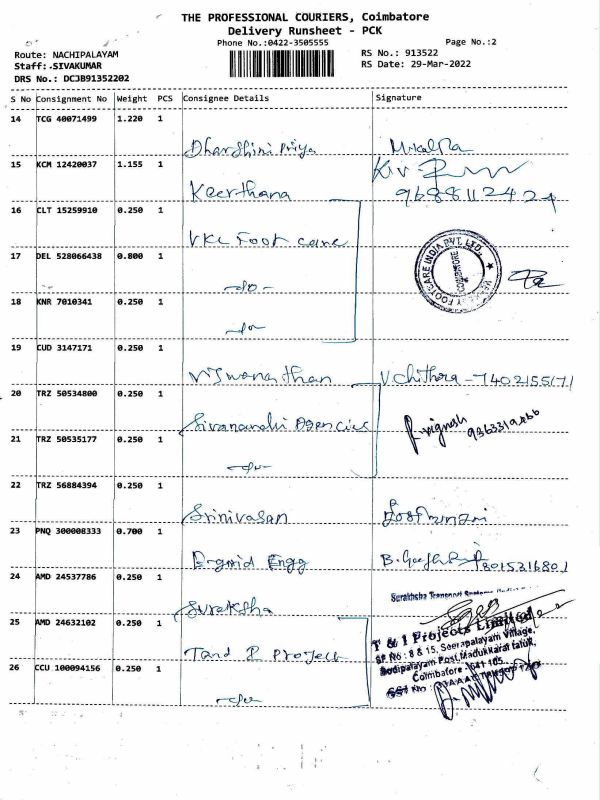 THE PROFESSIONAL COURIERS, Coimbatore
Delivery Runsheet - PCK
Phone No.:0422-3505555
Page No.:2
Route: NACHIPALAYAM
RS No.: 913522
Staff:.SIVAKUMAR
RS Date: 29-Mar-2022
DRS No.: DCJB91352202
S No Consignment No Weight PCS Consignee Details Signature
14 TCG 40071499 1.220 1
Dharshini Priya
15 KCM 12420037 1.155 1
Keerthana 9688112424
16 CLT 15259910 0.250 1
VKC Foot care
17 DEL 528066438 0.800 1
-do-
18 KNR 7010341 0.250 1
-do-
19 CUD 3147171 0.250 1
Viswanathan V Chithra - 7402155171
20 TRZ 50534800 0.250 1
Sivanandhi Agencies P. Vignesh
21 TRZ 50535177 0.250 1
-do-
22 TRZ 56884394 0.250 1
Srinivasan
23 PNQ 300008333 0.700 1
Engg
24 AMD 24537786 0.250 1
Suraksha
25 AMD 24632102 0.250 1
T and I Project
T & I Projects Limited
SF No : 8 & 15, Seerapalayam Village,
Bodipalayam Post, Madukkarai taluk,
Coimbatore - 641 105.
26 CCU 100094156 0.250 1
-do-